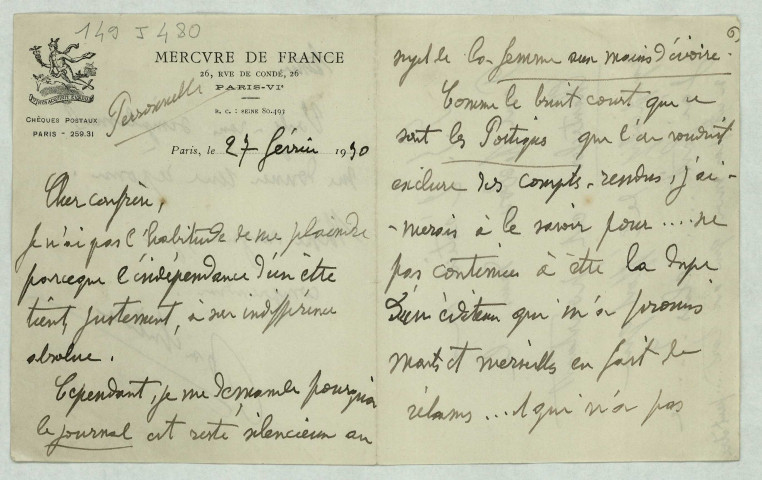 149 J 480
MERCVRE DE FRANCE
26, RVE DE CONDÉ, 26
PARIS-VIᵉ
R. C. : SEINE 80.493
CHÈQUES POSTAUX
PARIS - 259.31
Personnelle
Paris, le 27 février 1930
Cher confrère,
Je n'ai pas l'habitude de me plaindre
parceque l'indépendance d'un être
tient, justement, à son indifférence
absolue.
Cependant, je me demande pourquoi
le journal est resté silencieux au
sujet de la femme aux mains d'ivoire.
Comme le bruit court que ce
sont les Portiques que l'on voudrait
exclure des comptes-rendus, j'ai-
-merais à le savoir pour .... ne
pas continuer à être la dupe
d'un éditeur qui m'a promis
monts et merveilles en fait de
réclames ... et qui n'a pas